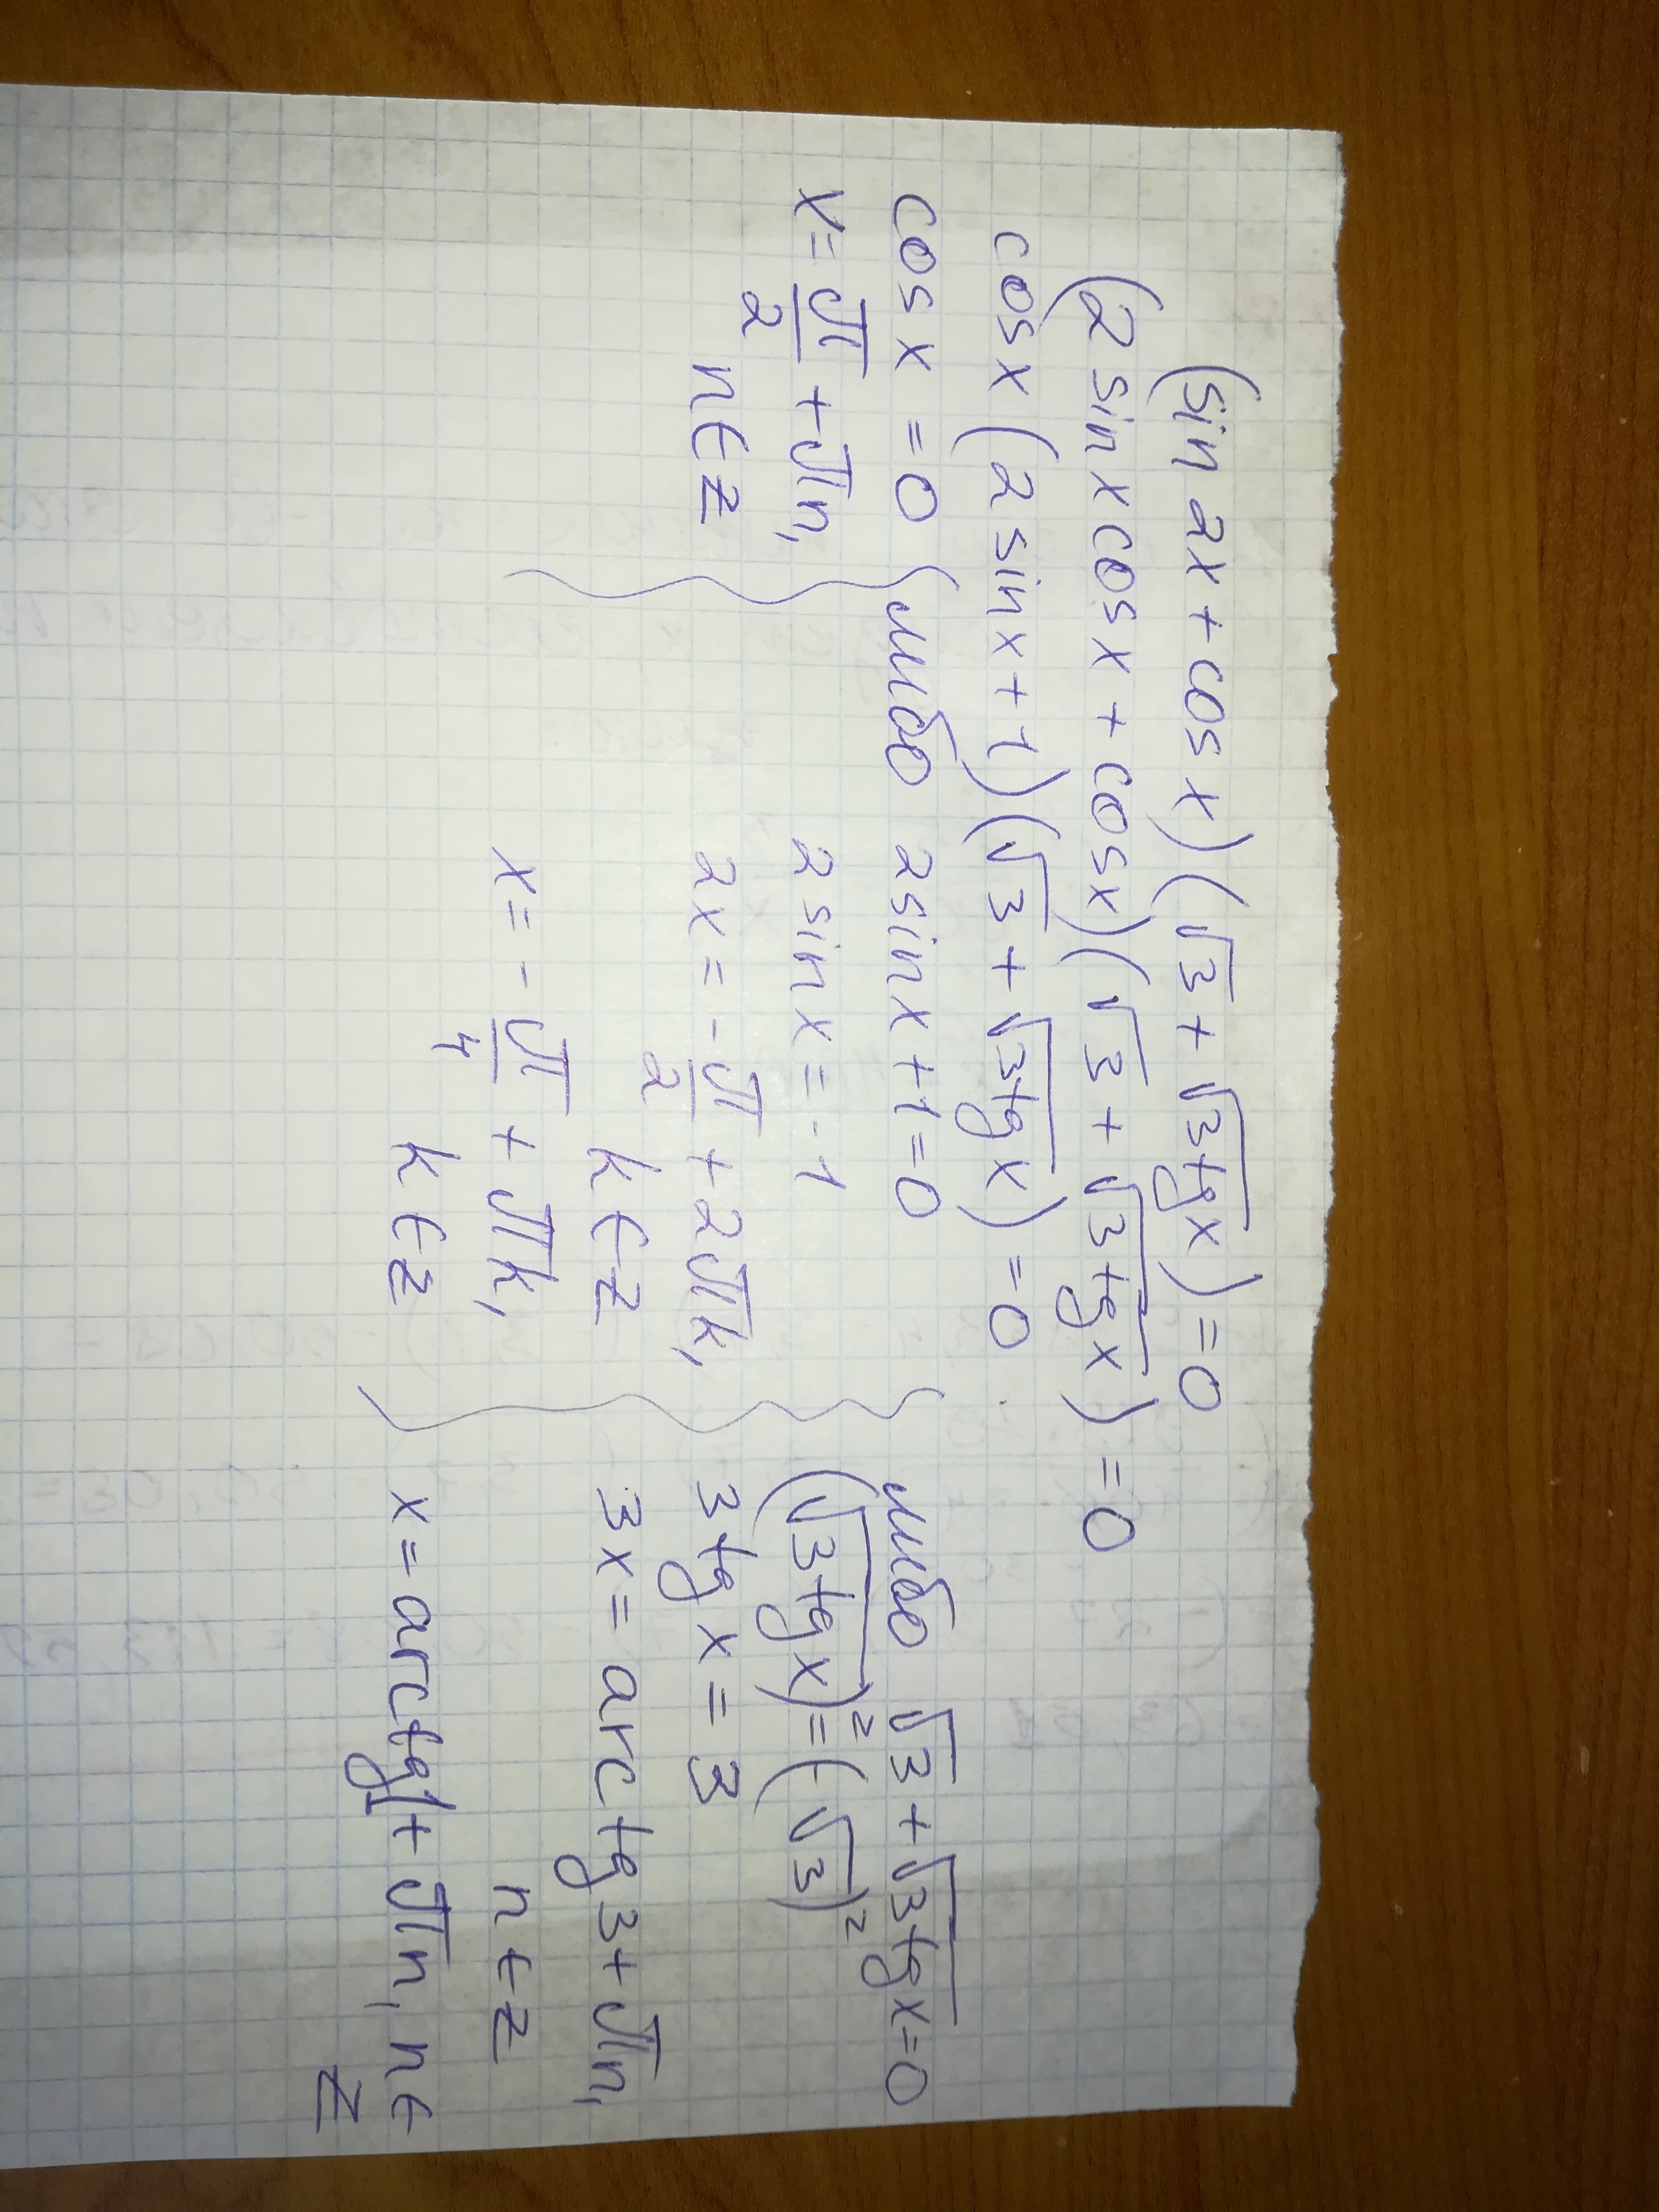 (sin 2x + cos x)(√3 + √(3tg x)) = 0
(2 sin x cos x + cos x)(√3 + √(3tg x)) = 0
cos x (2 sin x + 1)(√3 + √(3tg x)) = 0
cos x = 0 либо 2sin x + 1 = 0 либо √3 + √(3tg x) = 0
x = π/2 + πn,
n ∈ z
2 sin x = -1
2x = - π/2 + 2πk,
k ∈ z
x = - π/4 + πk,
k ∈ z
(√(3tg x))² = (-√3)²
3tg x = 3
3x = arc tg 3 + πn,
n ∈ z
x = arctg 1 + πn, n ∈
z